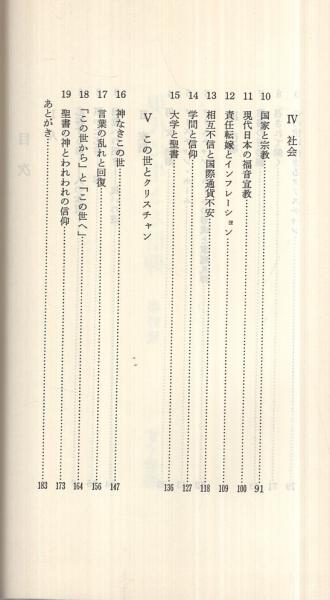 Ⅳ 社会
10 国家と宗教 91
11 現代日本の福音宣教 100
12 責任転嫁とインフレーション 109
13 相互不信と国際通貨不安 118
14 学問と信仰 127
15 大学と聖書 136
Ⅴ この世とクリスチャン
16 神なきこの世 147
17 言葉の乱れと回復 156
18 「この世から」と「この世へ」 164
19 聖書の神とわれわれの信仰 173
あとがき 183